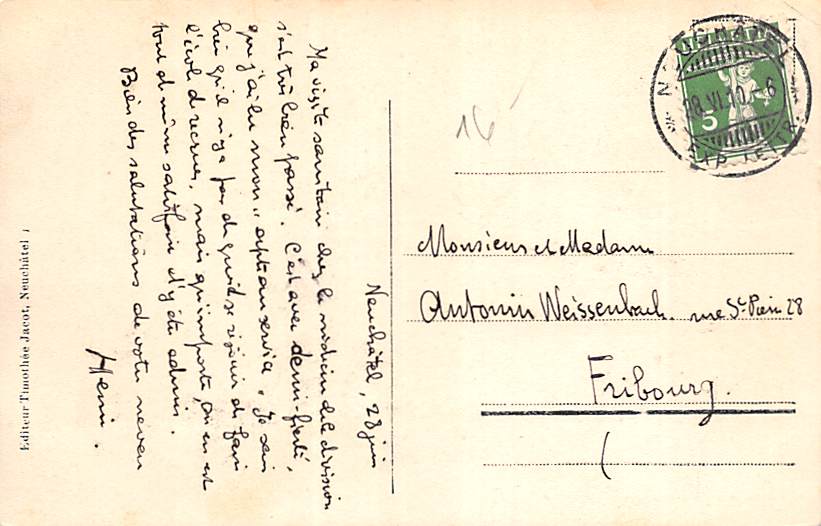 Neuchâtel, 28 juin
Ma visite sanitaire chez le médecin de la division
s'est très bien passé. C'est avec demi-fierté,
que j'ai lu mon "aptean servia". Je sais
bien qu'il n'y a pas de quoi se réjouir de faire
l'école de recrues, mais qu'importe, on en est
tout de même satisfait d'y être admis.
Bien des salutations de votre neveu
Henri.
Monsieur et Madame
Antonin Weissenbach. rue St Pierre 28
Fribourg.
16
NEUCHÂTEL
28.VI.10.-6
5
Editeur Timothée Jacot, Neuchâtel 1